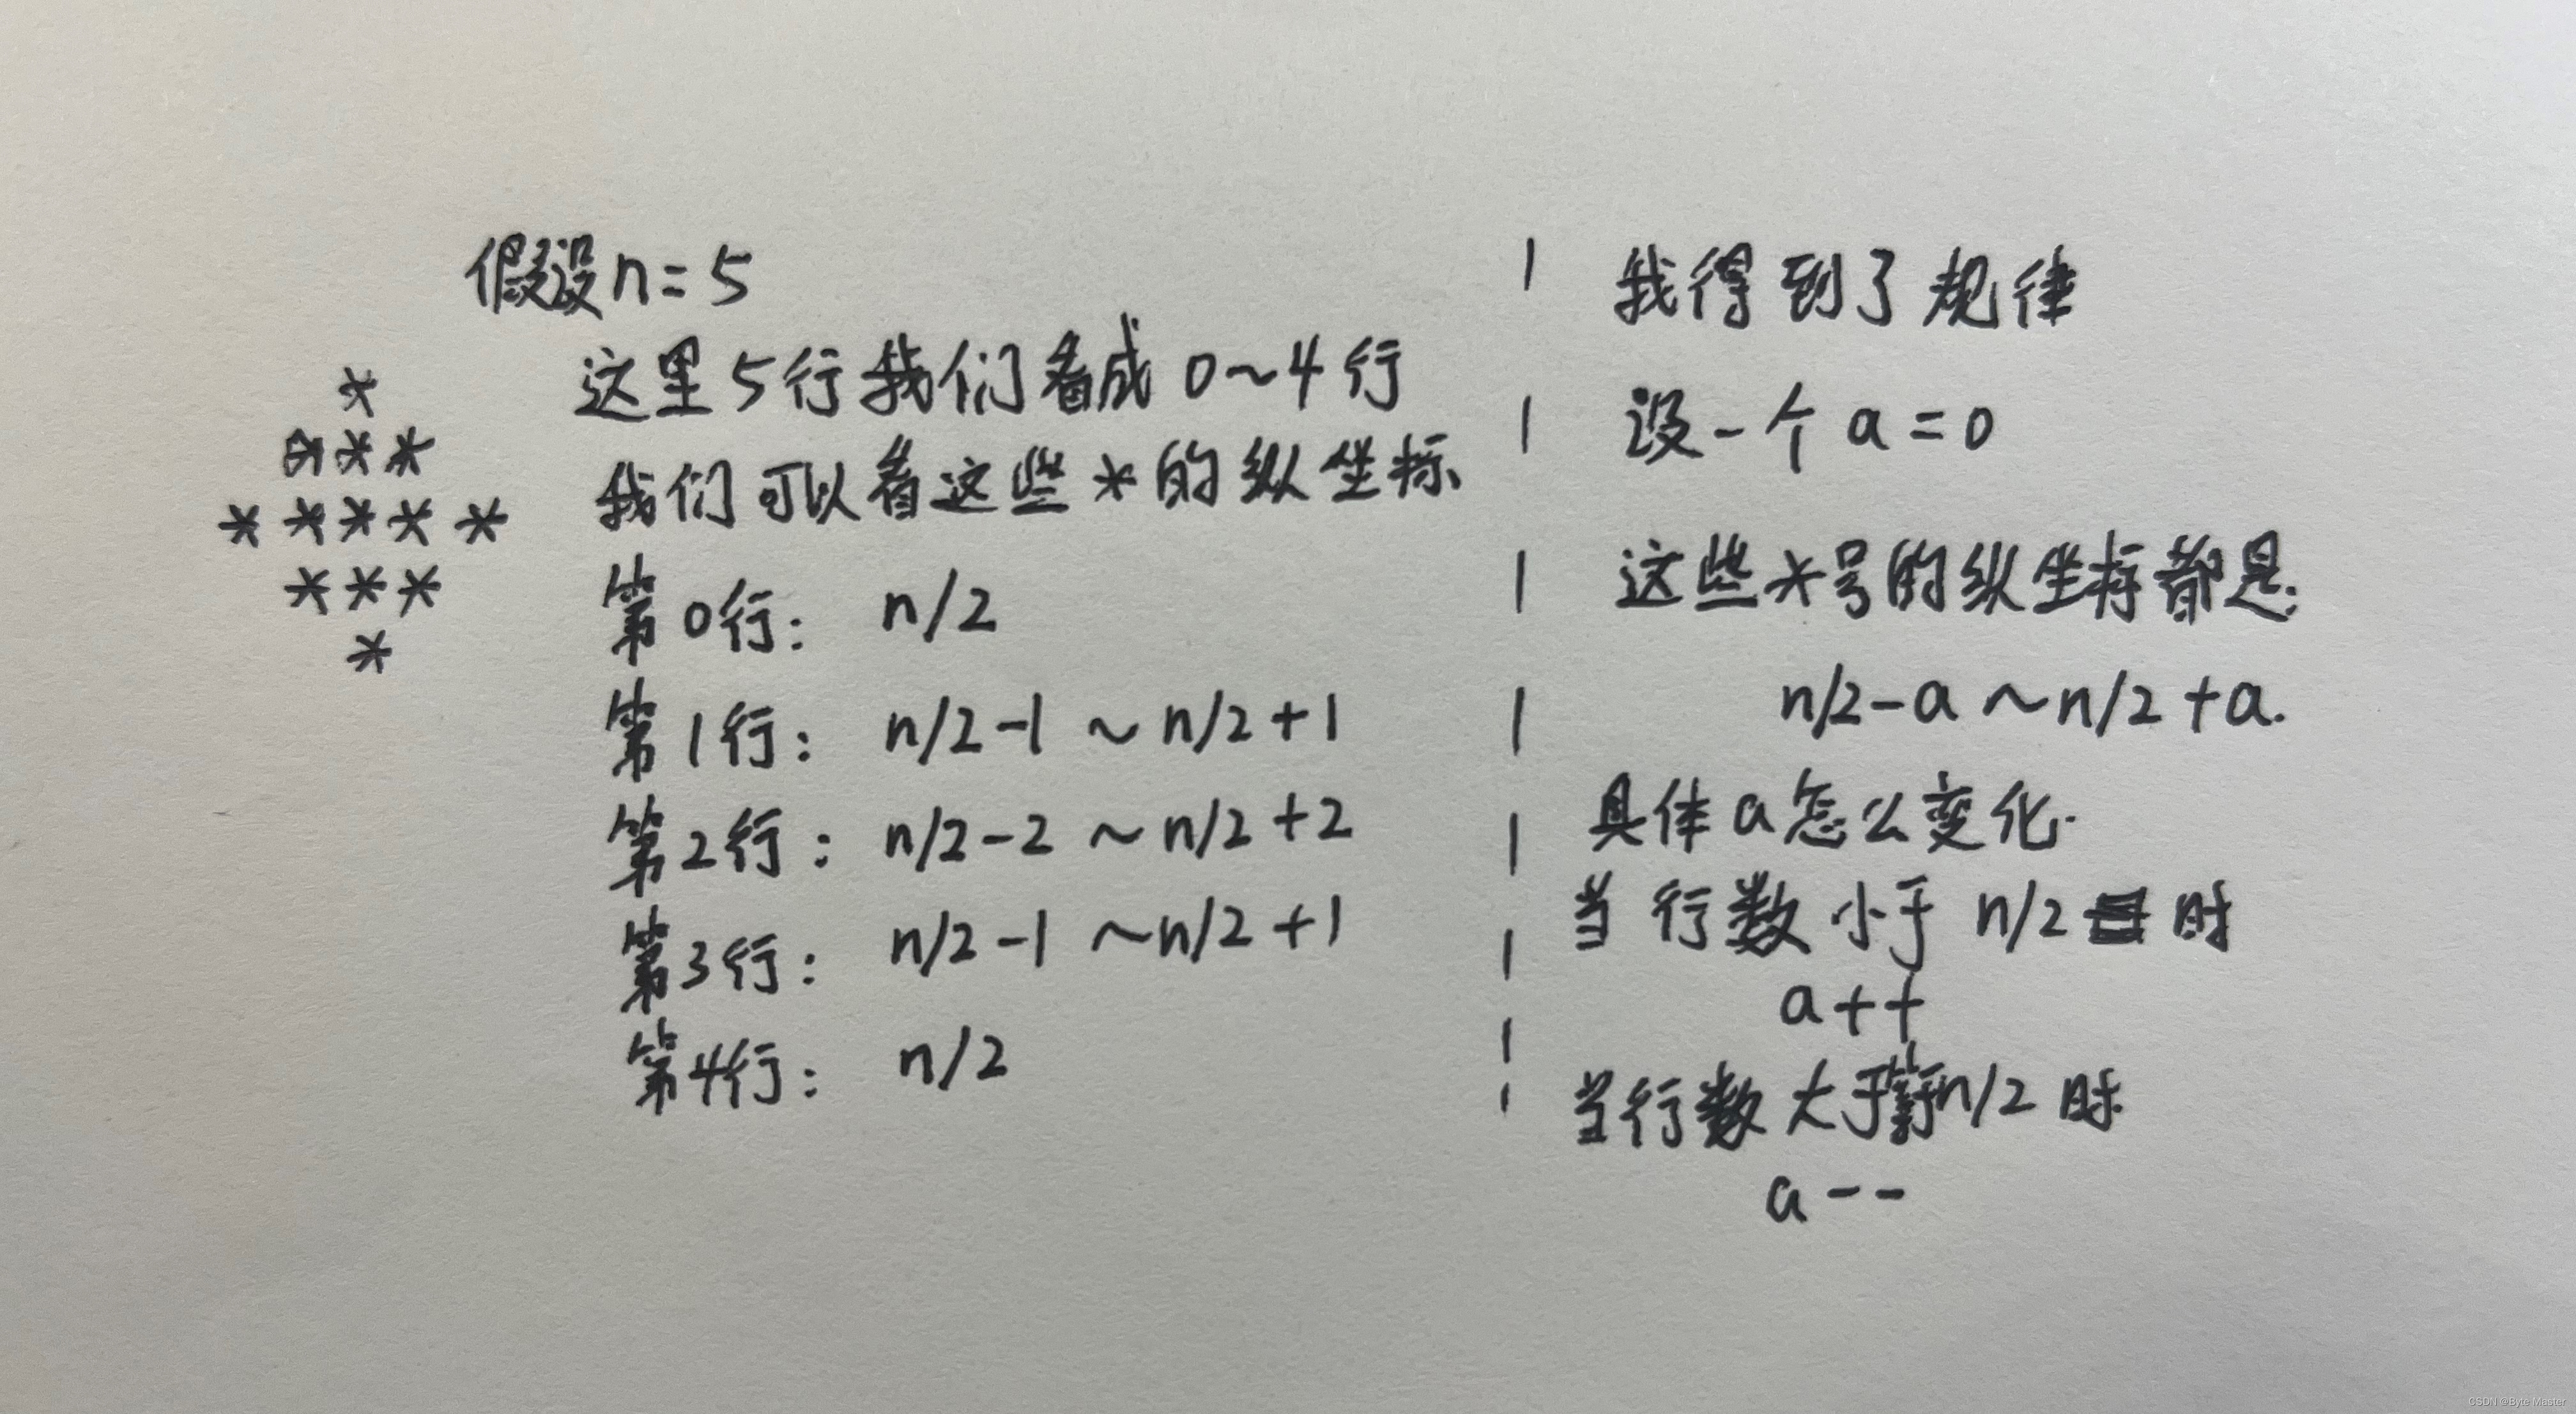 假设n=5
这里5行我们看成0~4行
我们可以看这些*的纵坐标
*
***
*****
***
*
第0行: n/2
第1行: n/2-1 ~ n/2+1
第2行: n/2-2 ~ n/2+2
第3行: n/2-1 ~ n/2+1
第4行: n/2
我得到了规律
设一个a=0
这些*号的纵坐标都是:
n/2-a ~ n/2+a.
具体a怎么变化.
当行数小于n/2时
a++
当行数大于等于n/2时
a--
CSDN @Byte Master